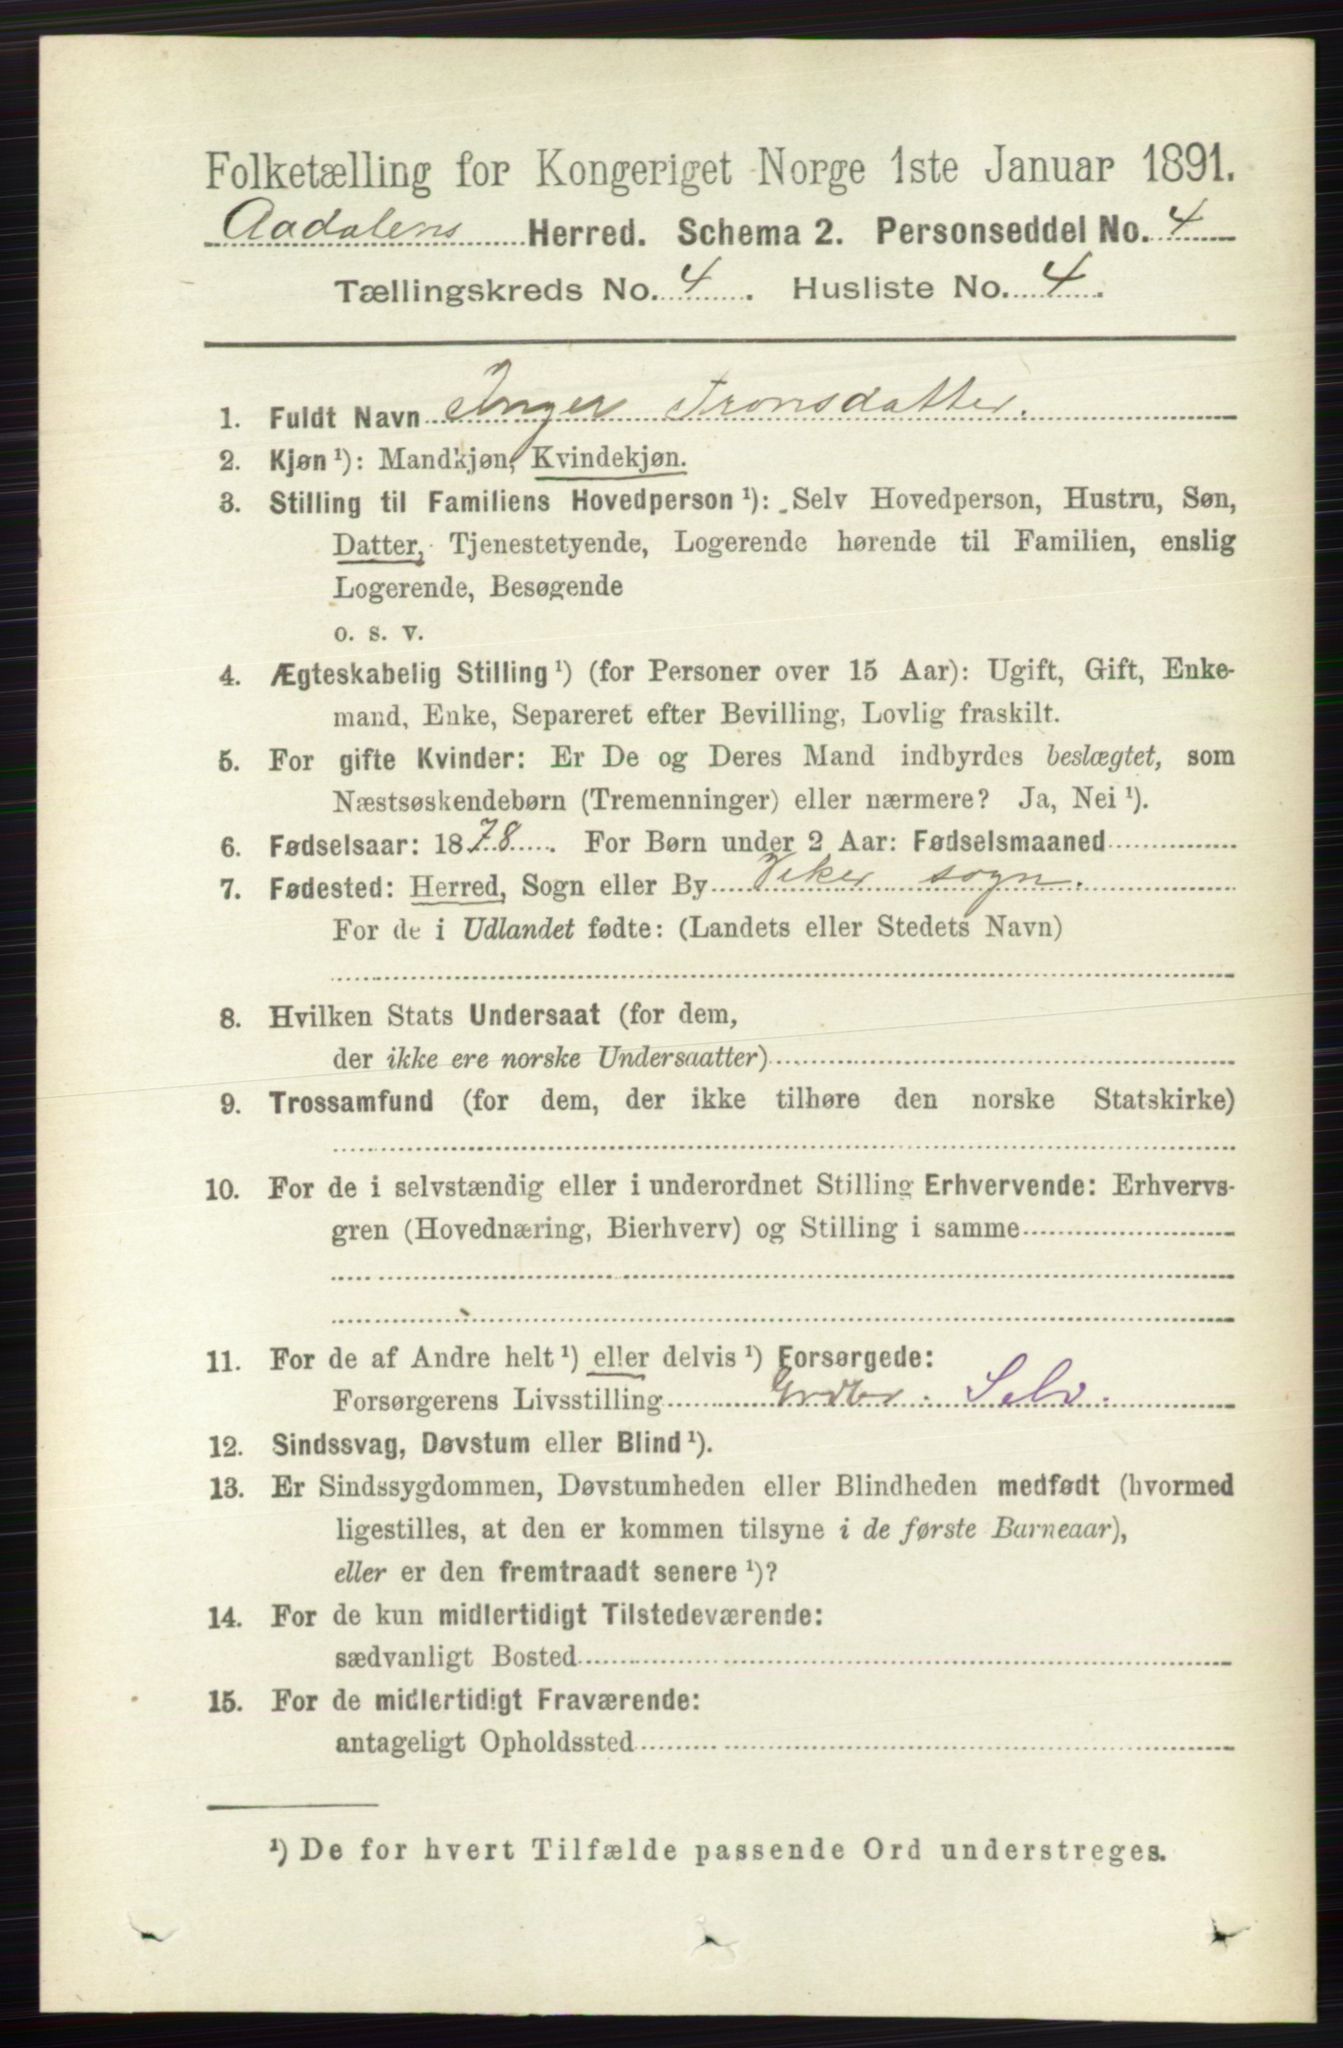 Folketælling for Kongeriget Norge 1ste Januar 1891.
Aadalens Herred. Schema 2. Personseddel No. 4
Tællingskreds No. 4. Husliste No. 4.
1. Fuldt Navn Inger Tronsdatter.
2. Kjøn ¹): Mandkjøn, Kvindekjøn.
3. Stilling til Familiens Hovedperson ¹): Selv Hovedperson, Hustru, Søn,
Datter, Tjenestetyende, Logerende hørende til Familien, enslig
Logerende, Besøgende
o. s. v.
4. Ægteskabelig Stilling ¹) (for Personer over 15 Aar): Ugift, Gift, Enke-
mand, Enke, Separeret efter Bevilling, Lovlig fraskilt.
5. For gifte Kvinder: Er De og Deres Mand indbyrdes beslægtet, som
Næstsøskendebørn (Tremenninger) eller nærmere? Ja, Nei ¹).
6. Fødselsaar: 1878. For Børn under 2 Aar: Fødselsmaaned
7. Fødested: Herred, Sogn eller By Viker sogn.
For de i Udlandet fødte: (Landets eller Stedets Navn)
8. Hvilken Stats Undersaat (for dem,
der ikke ere norske Undersaatter)
9. Trossamfund (for dem, der ikke tilhøre den norske Statskirke)
10. For de i selvstændig eller i underordnet Stilling Erhvervende: Erhvervs-
gren (Hovednæring, Bierhverv) og Stilling i samme
11. For de af Andre helt ¹) eller delvis ¹) Forsørgede:
Forsørgerens Livsstilling Grdbr. Selv.
12. Sindssvag, Døvstum eller Blind ¹).
13. Er Sindssygdommen, Døvstumheden eller Blindheden medfødt (hvormed
ligestilles, at den er kommen tilsyne i de første Barneaar),
eller er den fremtraadt senere ¹)?
14. For de kun midlertidigt Tilstedeværende:
sædvanligt Bosted
15. For de midlertidigt Fraværende:
antageligt Opholdssted
¹) De for hvert Tilfælde passende Ord understreges.